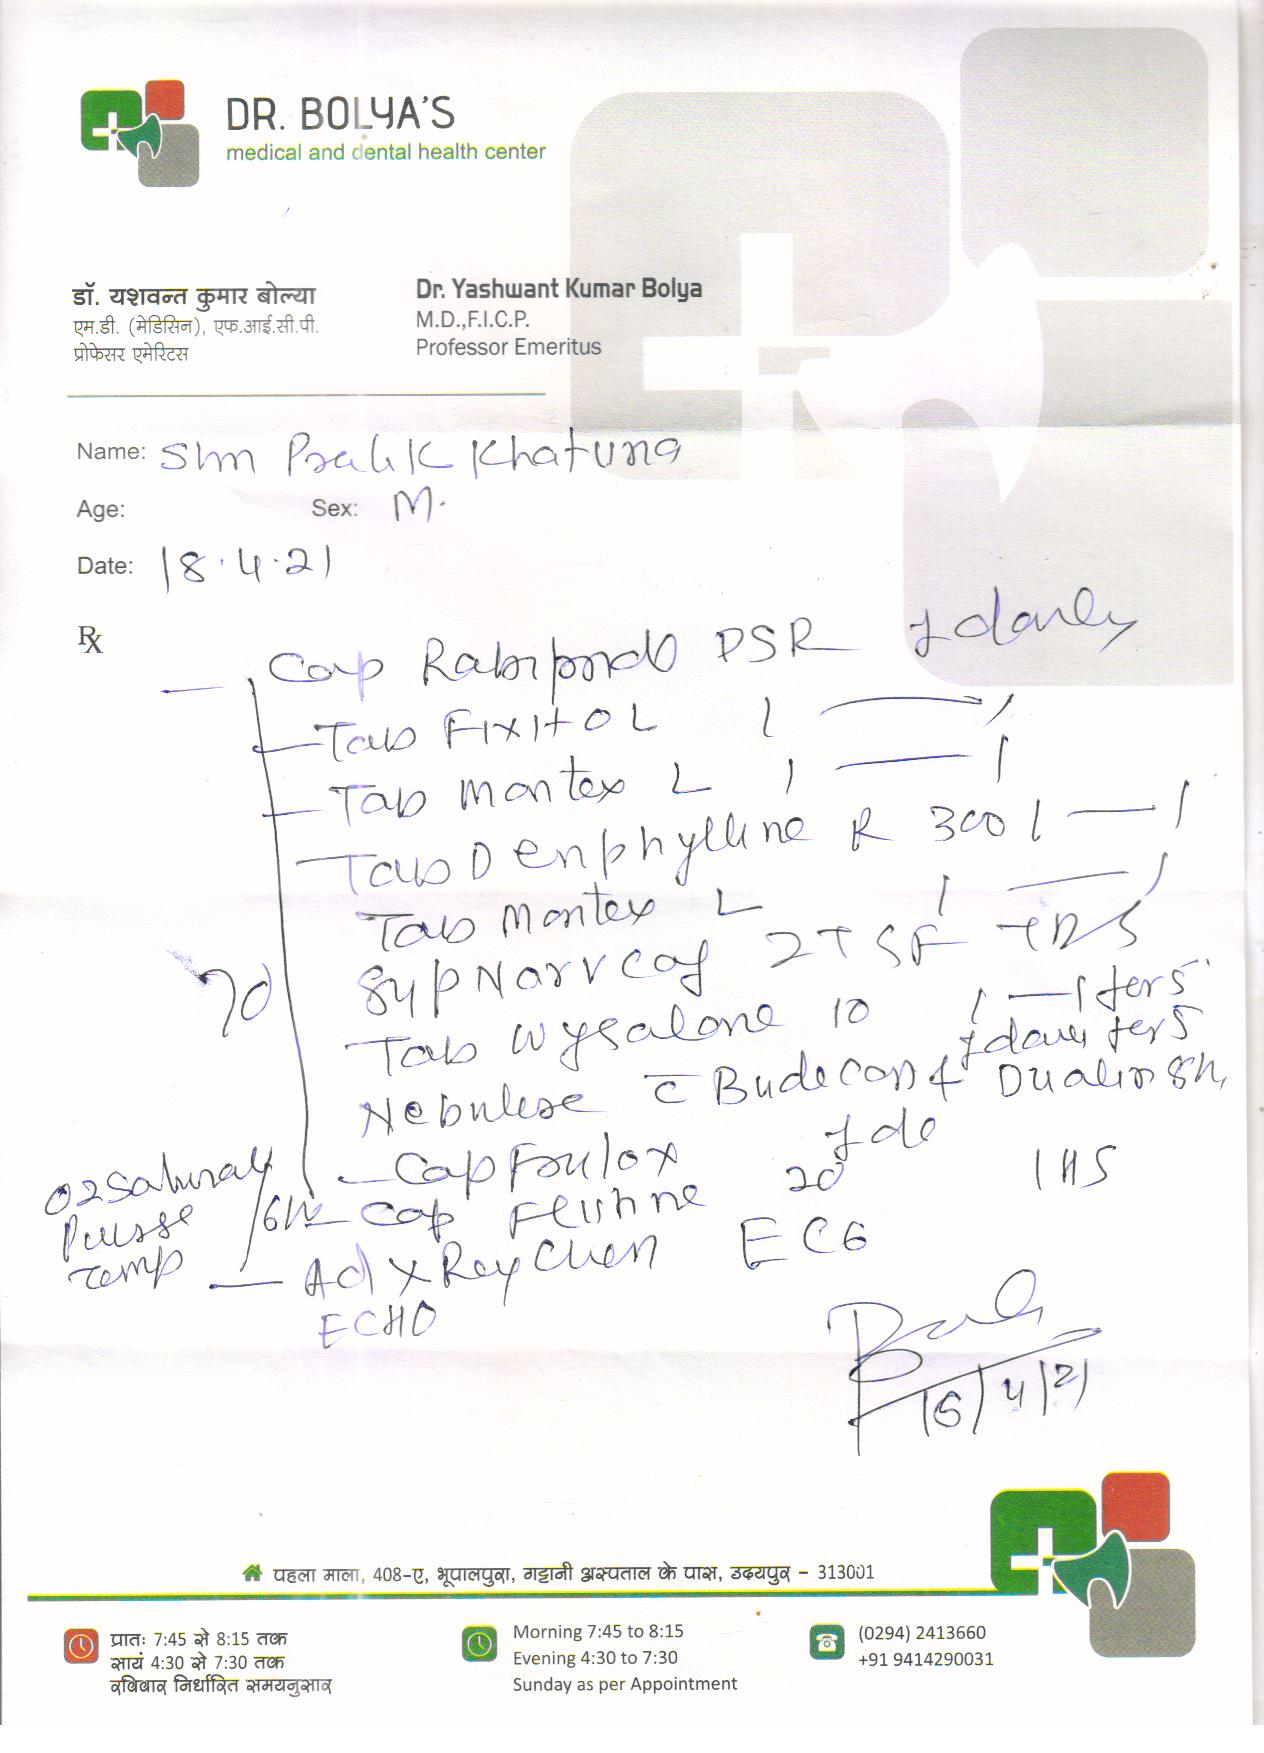 DR. BOLYA'S
medical and dental health center
डॉ. यशवन्त कुमार बोल्या
एम.डी. (मेडिसिन), एफ.आई.सी.पी.
प्रोफेसर एमेरिटस
Dr. Yashwant Kumar Bolya
M.D.,F.I.C.P.
Professor Emeritus
Name: Khatuna
Age: Sex: M.
Date: 18.4.21
Rx
Cap DSR
Tab FIXITOL 1 — 1
Tab Montex L 1 — 1
Tab Denphylline R 300 1 — 1
Tab Montex L 1 — 1
Syp 2TSF TDS
Tab Wysalone 10 1 — 1 for 5
Nebulise c Budecon
7d
Cap
Cap 20 1 HS
O2 Saturat
Pulse
Temp
/6h
Ad X Ray Chest ECG
ECHO
पहला माला, 408-ए, भूपालपुरा, गट्टानी अस्पताल के पास, उदयपुर - 313001
प्रातः 7:45 से 8:15 तक
सायं 4:30 से 7:30 तक
रविवार निर्धारित समयनुसार
Morning 7:45 to 8:15
Evening 4:30 to 7:30
Sunday as per Appointment
(0294) 2413660
+91 9414290031